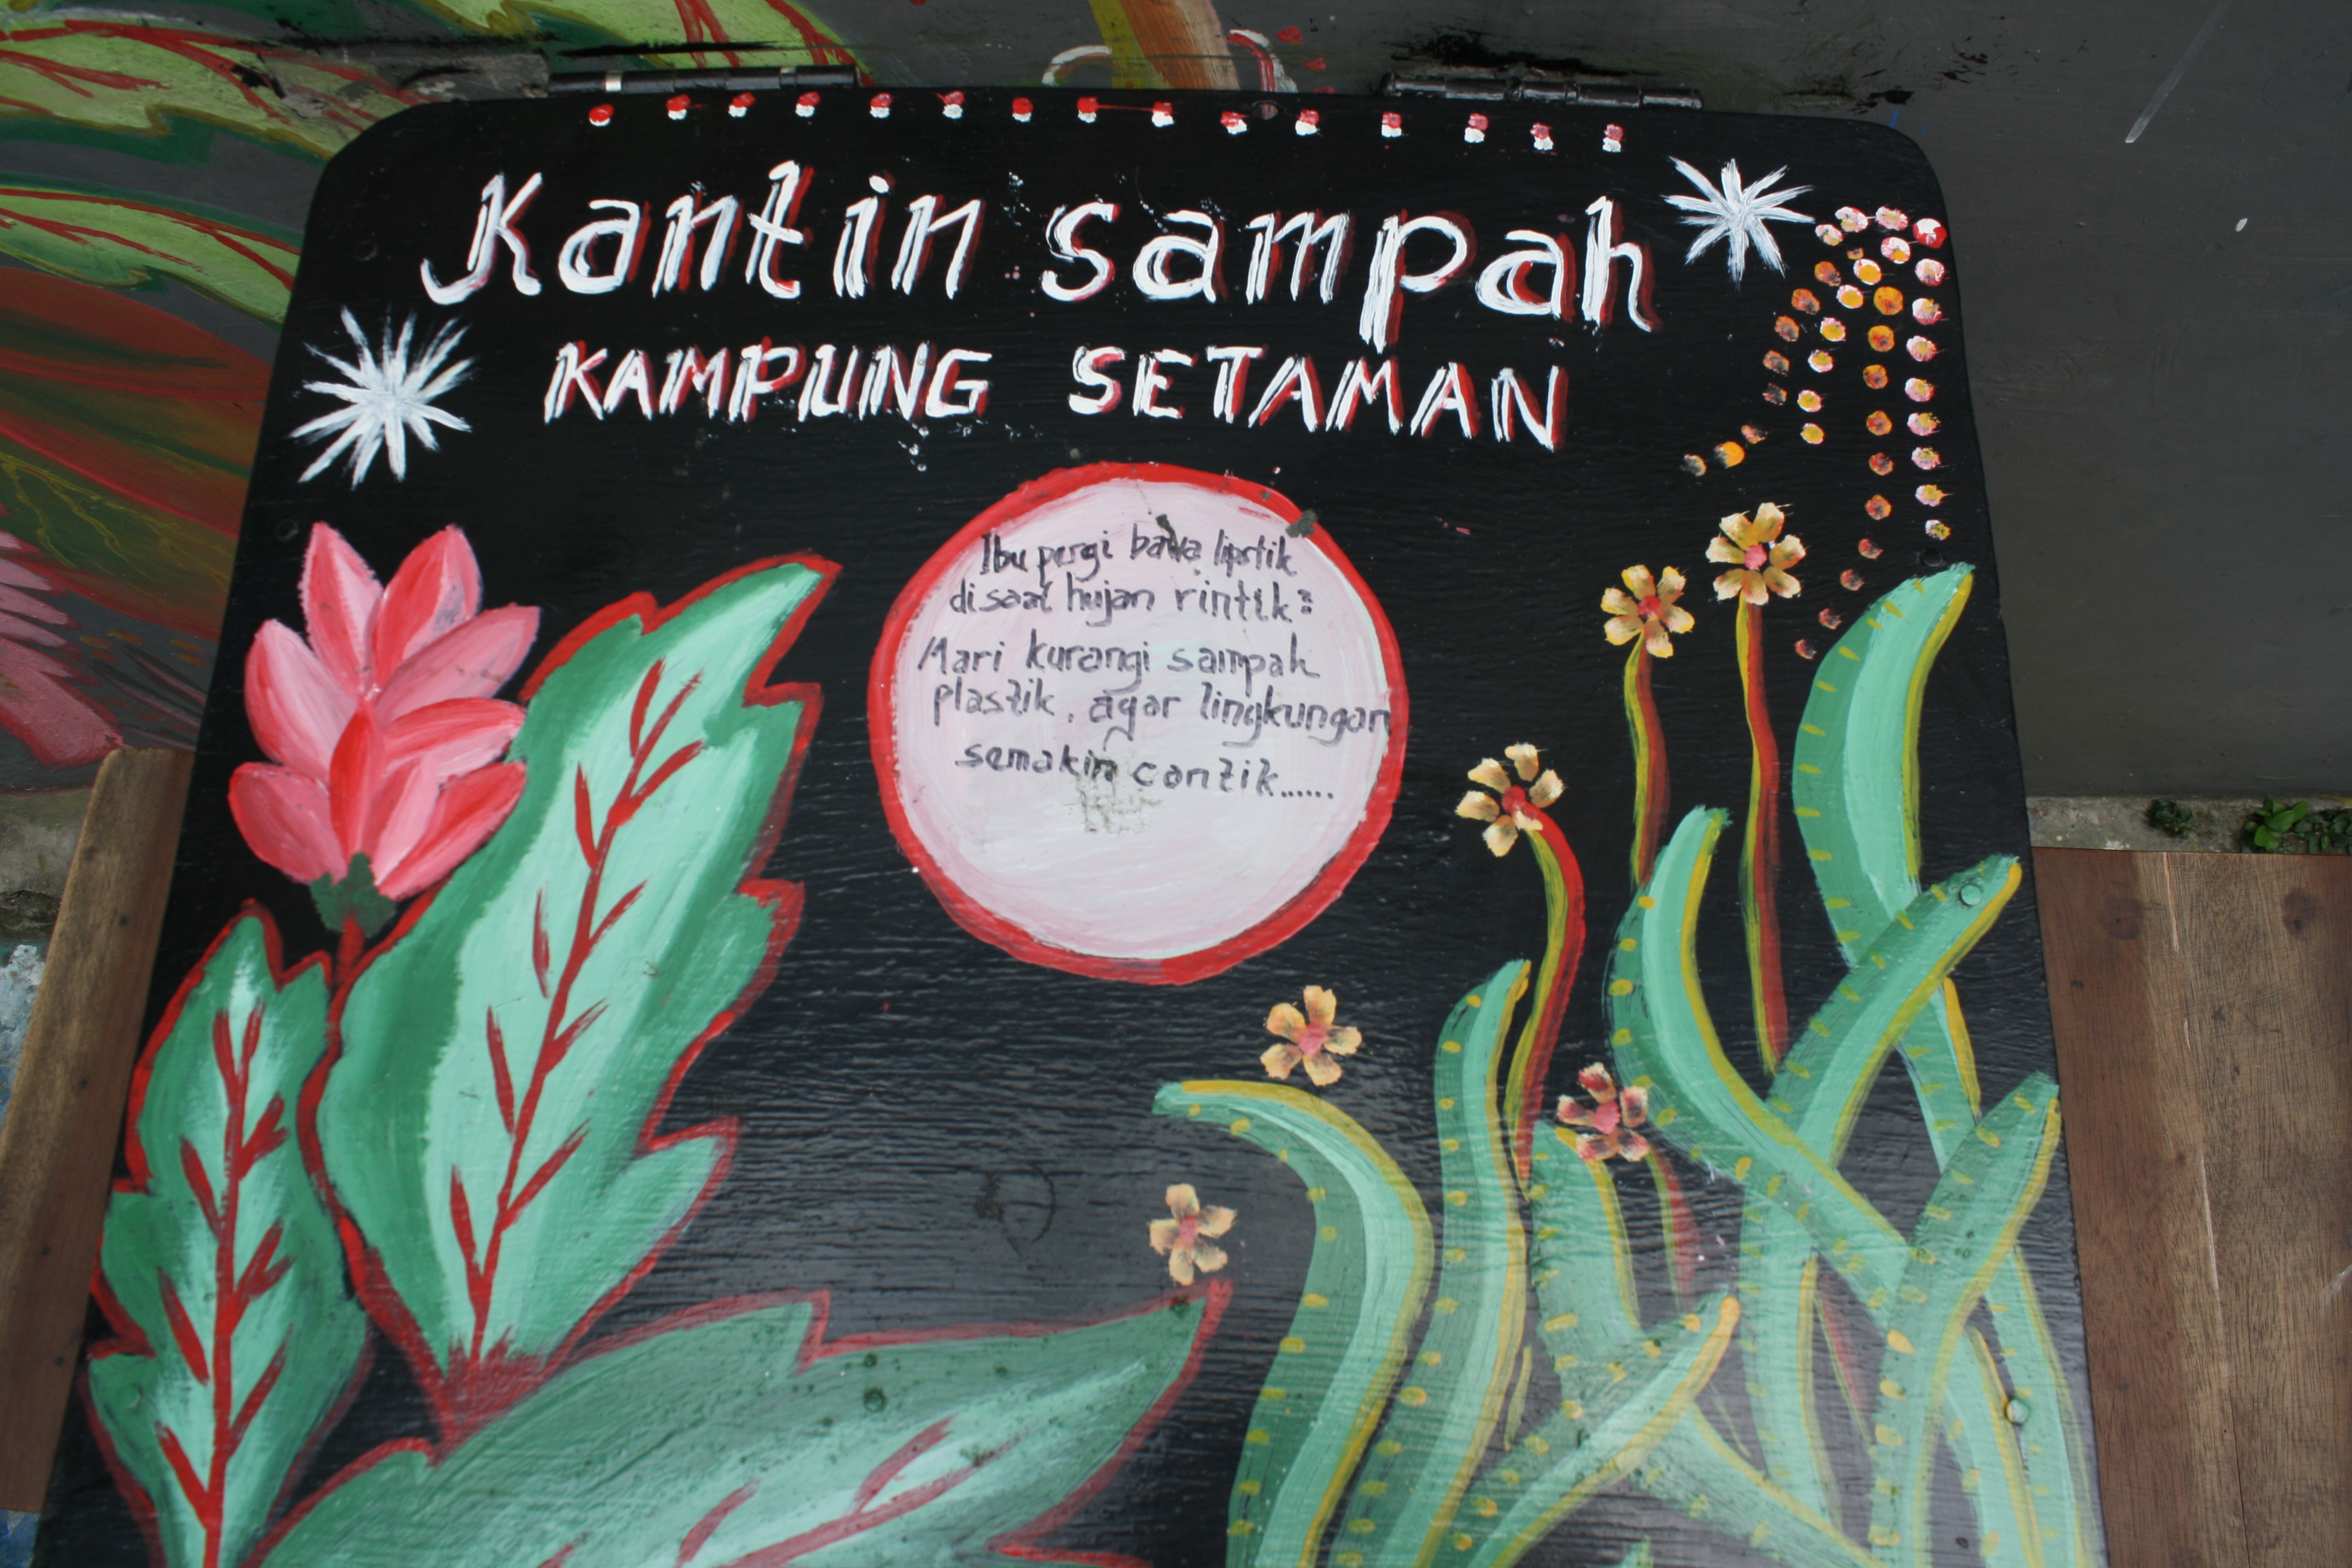 Kantin sampah
KAMPUNG SETAMAN
Ibu pergi bawa lipstik
disaat hujan rintik²
Mari kurangi sampah
plastik, agar lingkungan
semakin cantik......